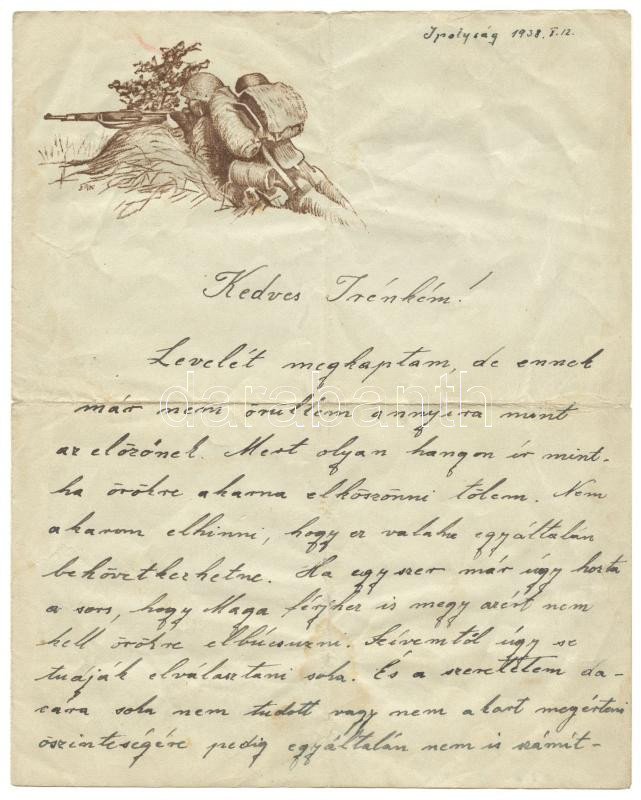 Ipolyság 1938. I. 12.
Kedves Irénkém!
Levelét megkaptam, de ennek
már nem örültem annyira mint
az előzőnek. Mert olyan hangon ír mint-
ha örökre akarna elköszönni tőlem. Nem
akarom elhinni, hogy ez valaha egyáltalán
bekövetkezhetne. Ha egyszer már úgy hozta
a sors, hogy Maga férjhez is megy azért nem
kell örökre elbúcsuzni. Szívemtől úgy se
tudják elválasztani soha. És a szeretetem da-
cára soha nem tudott vagy nem akart megérteni
őszinteségére pedig egyáltalán nem is számít-
darabanth